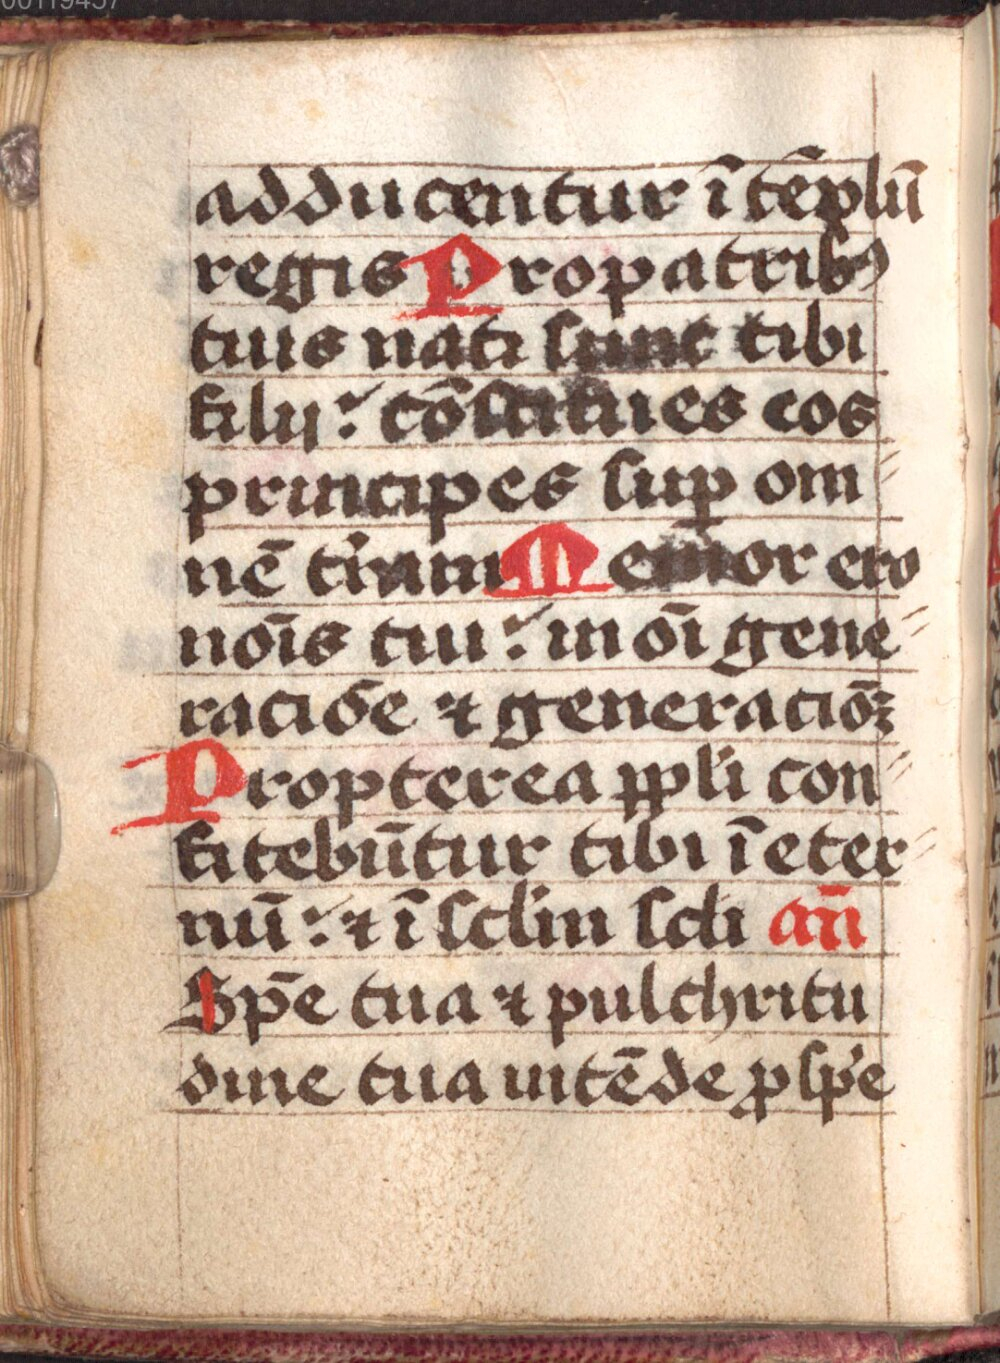 adducentur ī tēplū
regis Propatribꝰ
tuis nati sunt tibi
filij : cōstitues eos
principes suꝑ om
nē tr̄am Memor ero
noīs tui : in oī gene
racione ⁊ generacioꝫ
Propterea ppl̄i con
fitebūtur tibi ī eter
nū : ⁊ ī scl̄m scl̄i an̄
Spē tua ⁊ pulchritu
dine tua intēde ꝓspe